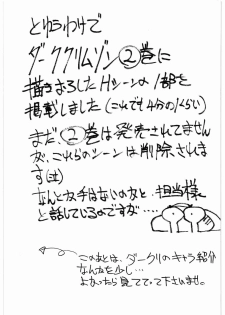 とゆうわけで
ダーククリムゾン②巻に
描きおろしたHシーンの1部を
掲載しました(これでも4分の1くらい)
まだ、②巻は発売されてません
が、これらのシーンは削除されま
す(泣)
なんとか手はないのかと、担当様
と話しているのですが‥‥
このあとは、ダークリのキャラ紹介
なんかを少し…
よかったら見てってて下さいませ。